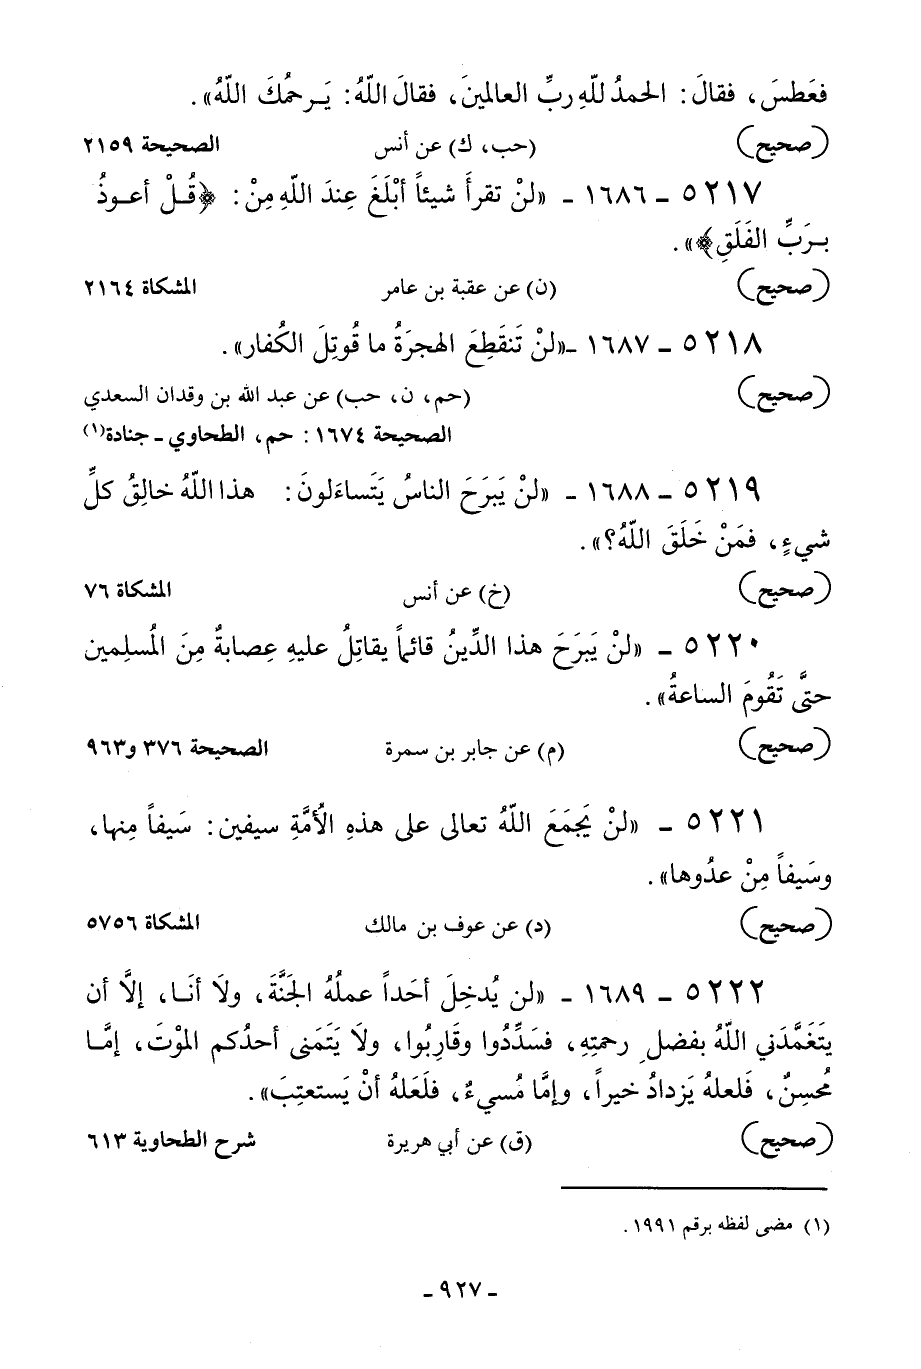 فعَطسَ، فقالَ: الحمدُ للّهِ ربِّ العالمينَ، فقالَ اللّهُ: يَـرحمُكَ اللّهُ».
(صحيح) (حب، ك) عن أنس الصحيحة ٢١٥٩
٥٢١٧ ـ ١٦٨٦ ـ «لنْ تقرأَ شيئاً أبْلَغَ عِندَ اللّهِ مِنْ: ﴿قُـلْ أعـوذُ
بـرَبِّ الفَلَقِ﴾».
(صحيح) (ن) عن عقبة بن عامر المشكاة ٢١٦٤
٥٢١٨ ـ ١٦٨٧ ـ«لنْ تَنقَطِعَ الهجرَةُ ما قُوتِلَ الكُفار».
(صحيح) (حم، ن، حب) عن عبد الله بن وقدان السعدي
الصحيحة ١٦٧٤: حم، الطحاوي ـ جنادة(١)
٥٢١٩ ـ ١٦٨٨ ـ «لنْ يَبرَحَ الناسُ يَتَساءَلونَ: هذا اللّهُ خالِقُ كلِّ
شيءٍ، فمَنْ خَلَقَ اللّهُ؟».
(صحيح) (خ) عن أنس المشكاة ٧٦
٥٢٢٠ ـ «لنْ يَبرَحَ هذا الدِّينُ قائماً يقاتِلُ عليهِ عِصابةٌ مِنَ المُسلِمين
حتَّى تَقُومَ الساعةُ».
(صحيح) (م) عن جابر بن سمرة الصحيحة ٣٧٦ و٩٦٣
٥٢٢١ ـ «لنْ يَجمَعَ اللّهُ تعالى على هذهِ الأُمَّةِ سيفين: سَيفاً مِنها،
وسَيفاً مِنْ عدُوها».
(صحيح) (د) عن عوف بن مالك المشكاة ٥٧٥٦
٥٢٢٢ ـ ١٦٨٩ ـ «لن يُدخِلَ أحَداً عملُهُ الجَنَّةَ، ولَا أنَـا، إلاَّ أن
يتَغَمَّدَني اللّهُ بفضلِ رحمتِهِ، فسَدِّدُوا وقَارِبُوا، ولَا يَتَمَنى أحدُكم الموْتَ، إمَّـا
مُحسِنٌ، فَلعلهُ يَزدادُ خيراً، وإمَّا مُسيءٌ، فلَعَلهُ أنْ يَستعتِبَ».
(صحيح) (ق) عن أبي هريرة شرح الطحاوية ٦١٣
(١) مضى لفظه برقم ١٩٩١.
ـ ٩٢٧ ـ